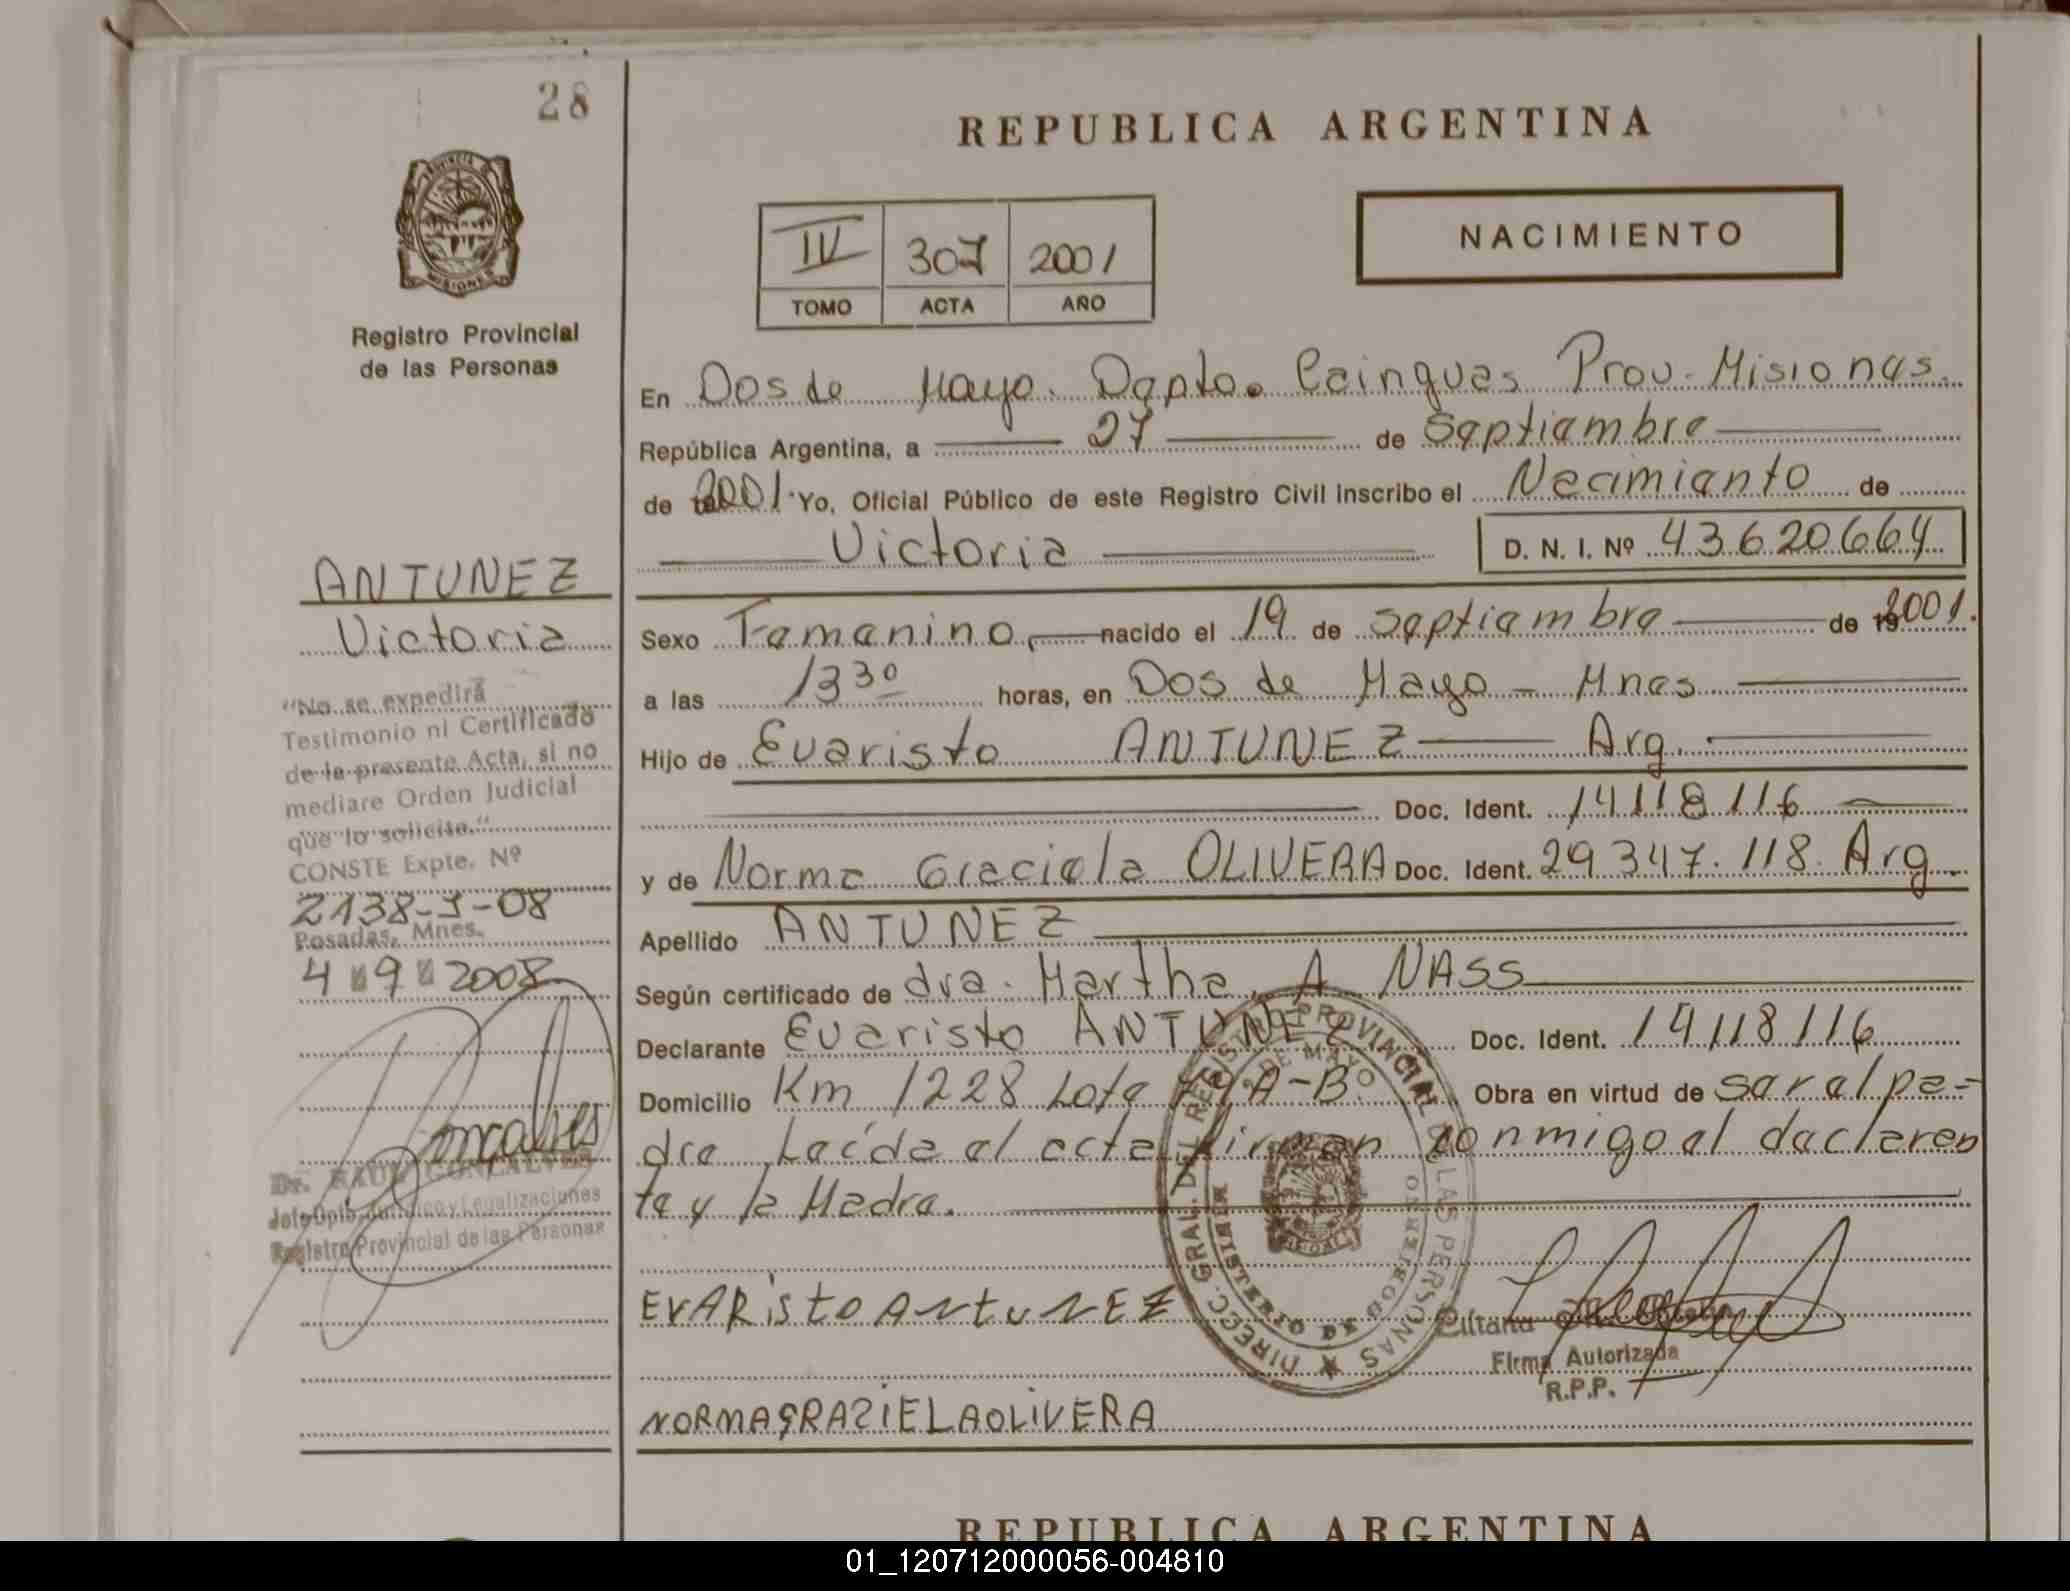 28
REPUBLICA ARGENTINA
PROVINCIA
MISIONES
Registro Provincial
de las Personas
IV 307 2001
TOMO ACTA AÑO
NACIMIENTO
En Dos de Mayo. Depto. Cainguas Prov. Misiones.
República Argentina, a 27 de Septiembre
de 2001. Yo, Oficial Público de este Registro Civil inscribo el Necimiento de
Victoria D. N. I. Nº 43620664
ANTUNEZ
Victoria
Sexo Femenino, nacido el 19 de septiembre de 2001.
a las 13 30 horas, en Dos de Mayo - Mnes
Hijo de Evaristo ANTUNEZ Arg.
Doc. Ident. 14118116
y de Norma Graciela OLIVERA Doc. Ident. 29347.118. Arg.
Apellido ANTUNEZ
Según certificado de dra. Martha A NASS
Declarante Evaristo ANTUNEZ Doc. Ident. 14118116
Domicilio Km 1228 Lote 79 A-B. Obra en virtud de ser el pa=
dre Leída el acta firman conmigo el declaren
te y la Madre.
EVARisto ANtuNEZ
NORMAGRAZIELAOLIVERA
"No se expedirá
Testimonio ni Certificado
de la presente Acta, si no
mediare Orden Judicial
que lo solicite."
CONSTE Expte. Nº
2138-J-08
Posadas, Mnes.
4 9 2008
Goncalves
Dr. RAUL GONCALVES
Jefe Dpto. Jurídico y Legalizaciones
Registro Provincial de las Personas
DIRECC. GRAL. DEL REGISTRO PROVINCIAL DE LAS PERSONAS
2 DE MAYO
MINISTERIO DE GOBIERNO
Firma Autorizada
R.P.P.
REPUBLICA ARGENTINA
01_120712000056-004810